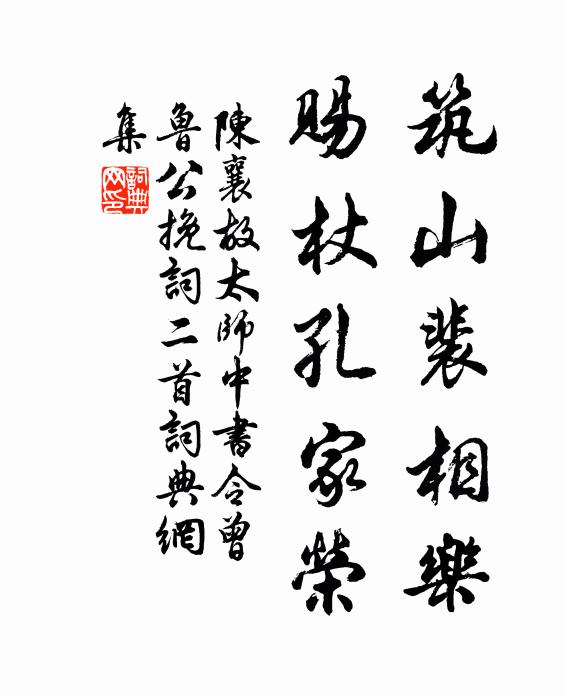 筑山裴相樂
賜杖孔家榮
陳襄故太師中書令曾
魯公挽詞二首詞典網
集
詞典網印